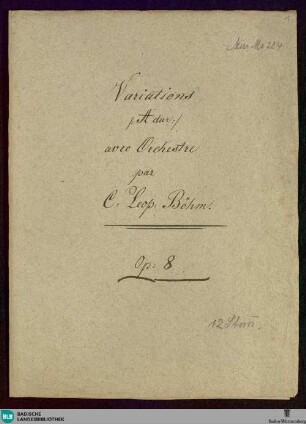 1
Mus. Ms 224
Variations
/: A dur :/
avec Orchestre
par
C. Leop. Böhm.
Op: 8
12 Stim̄.
BLB BADISCHE
LANDESBIBLIOTHEK
Baden-Württemberg